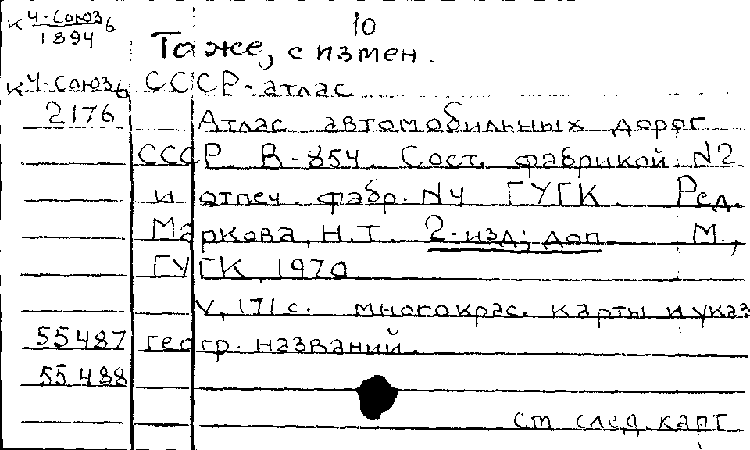 К Ч-Союз6 10
1894 То же, с измен.
К Ч-Союз6 СССР-атлас
2176 Атлас автомобильных дорог
СССР В-854. Сост. фабрикой N2
и отпеч. фабр. N4 ГУГК. Ред.
Маркова, Н.Т. 2-изд; доп М,
ГУГК, 1970
V, 171 с. многокрас. карты и указ
55487 геогр. названий.
55488
см след. карт